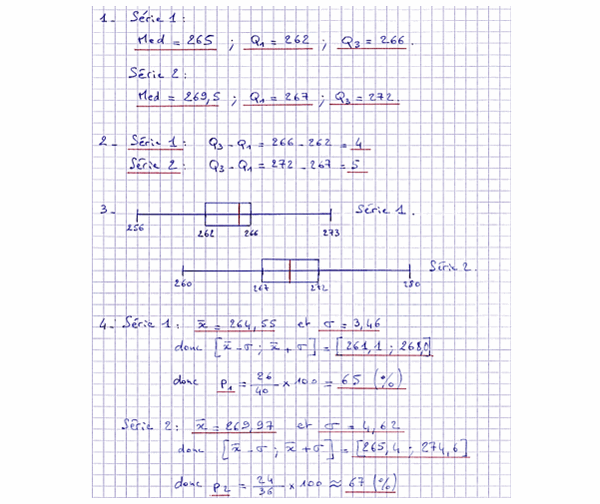 1. Série 1 :
Med = 265 ; Q1 = 262 ; Q3 = 266 .
Série 2 :
Med = 269,5 ; Q1 = 267 ; Q3 = 272
2. Série 1 : Q3 - Q1 = 266 - 262 = 4
Série 2 : Q3 - Q1 = 272 - 267 = 5
3.
Série 1 .
256 262 266 273
Série 2 .
260 267 272 280
4. Série 1 : x̄ = 264,55 et σ = 3,46
donc [x̄ - σ ; x̄ + σ] = [261,1 ; 268,0]
donc p1 = 26/40 × 100 = 65 (%)
Série 2 : x̄ = 269,97 et σ = 4,62
donc [x̄ - σ ; x̄ + σ] = [265,4 ; 274,6]
donc p2 = 24/36 × 100 ≈ 67 (%)